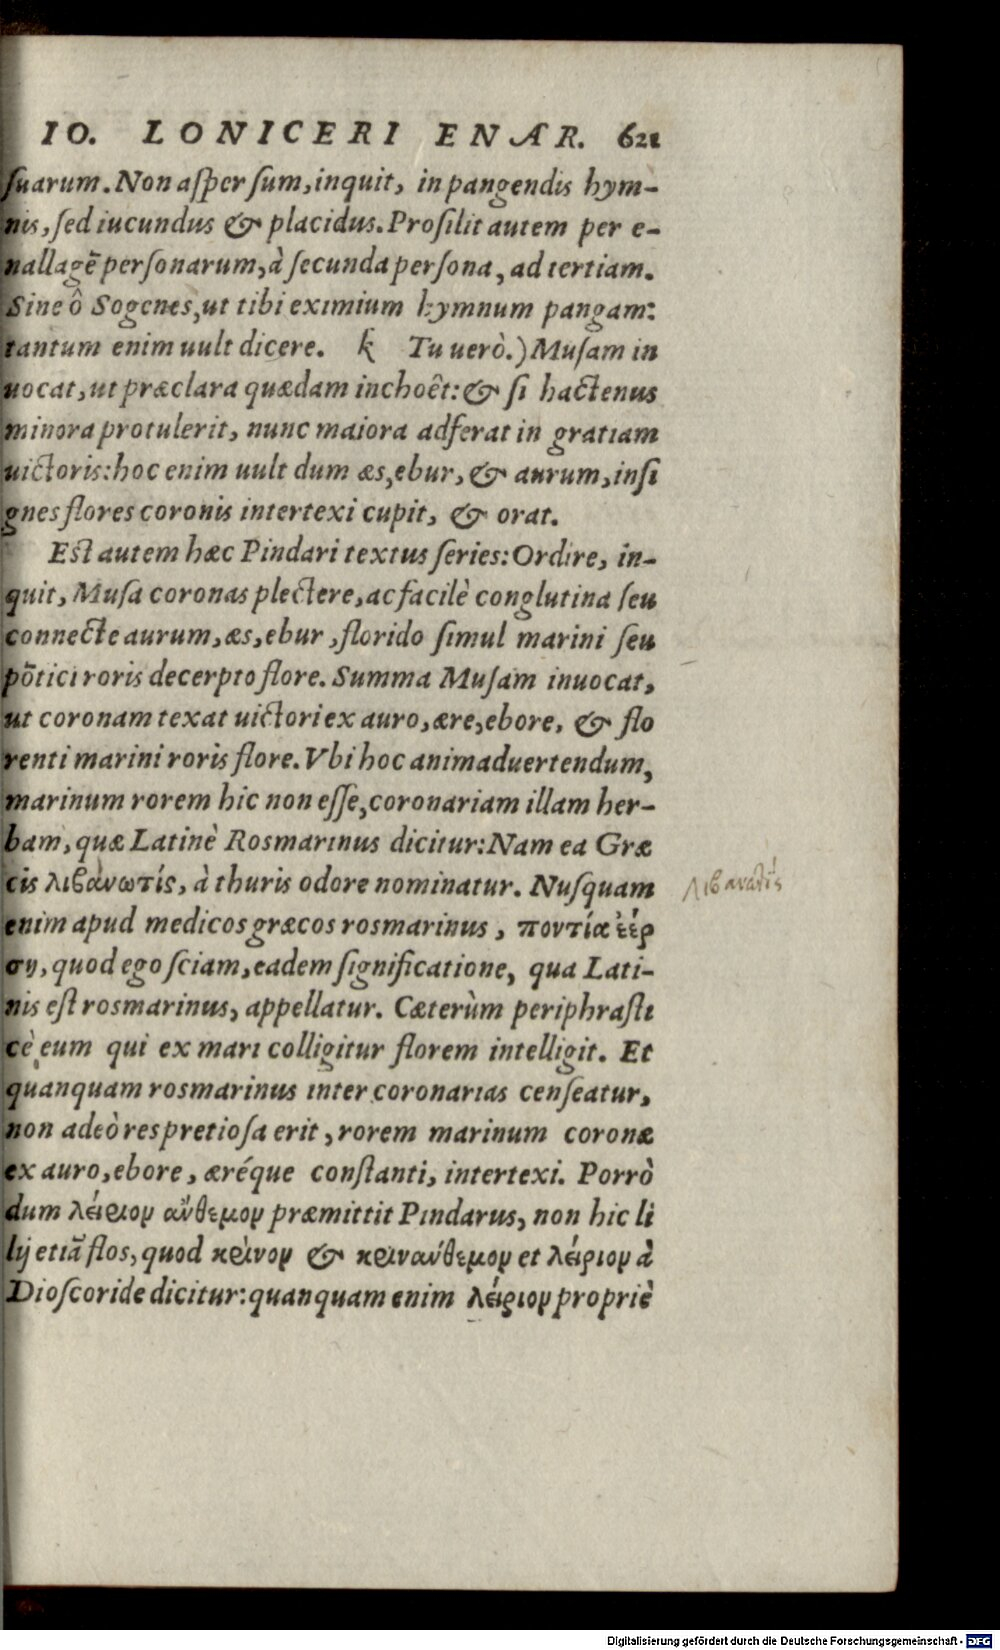 IO. LONICERI ENAR. 621
suarum. Non asper sum, inquit, in pangendis hym-
nis, sed iucundus & placidus. Prosilit autem per e-
nallagē personarum, à secunda persona, ad tertiam.
Sine ô Sogenes, ut tibi eximium hymnum pangam:
tantum enim uult dicere. k Tu uerò.) Musam in
uocat, ut præclara quædam inchoêt: & si hactenus
minora protulerit, nunc maiora adferat in gratiam
uictoris: hoc enim uult dum æs, ebur, & aurum, insi
gnes flores coronis intertexi cupit, & orat.
Est autem hæc Pindari textus series: Ordire, in-
quit, Musa coronas plectere, ac facilè conglutina seu
connecte aurum, æs, ebur, florido simul marini seu
pōtici roris decerpto flore. Summa Musam inuocat,
ut coronam texat uictori ex auro, ære, ebore, & flo
renti marini roris flore. Vbi hoc animaduertendum,
marinum rorem hic non esse, coronariam illam her-
bam, quæ Latinè Rosmarinus dicitur: Nam ea Græ
cis λιβανωτίς, à thuris odore nominatur. Nusquam
λιβανωτίς
enim apud medicos græcos rosmarinus, ποντία ἐέρ
ση, quod ego sciam, eadem significatione, qua Lati-
nis est rosmarinus, appellatur. Cæterùm periphrasti
cè eum qui ex mari colligitur florem intelligit. Et
quanquam rosmarinus inter coronarias censeatur,
non adeò res pretiosa erit, rorem marinum coronæ
ex auro, ebore, æréque constanti, intertexi. Porrò
dum λείριον ἄνθεμον præmittit Pindarus, non hic li
lij etiā flos, quod κρίνον & κρινάνθεμον et λείριον à
Dioscoride dicitur: quanquam enim λείριον propriè
Digitalisierung gefördert durch die Deutsche Forschungsgemeinschaft - DFG